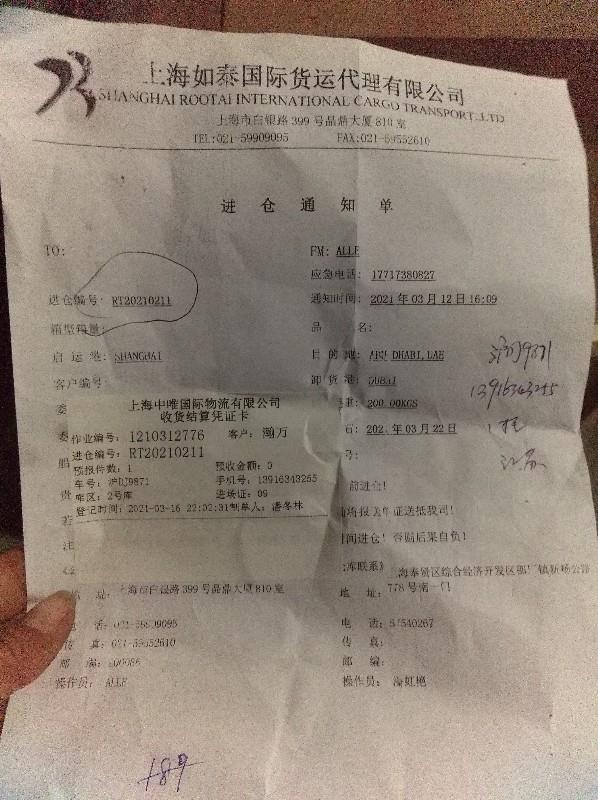 上海如泰国际货运代理有限公司
SHANGHAI ROOTAI INTERNATIONAL CARGO TRANSPORT.,LTD
上海市白银路399号品鼎大厦810室
TEL:021-59909095 FAX:021-59552610
进仓通知单
TO: FM: ALLE
应急电话: 17717380827
进仓编号: RT20210211 通知时间: 2021年03月12日16:09
箱型箱量: 品 名:
启运港: SHANGHAI 目的地: ABU DHABI,UAE
客户编号: 卸货港: DUBAI
重: 200.00KGS
年03月22日
号:
13916343255
上海中唯国际物流有限公司
收货结算凭证卡
作业编号: 1210312776 客户: 瀚万
进仓编号: RT20210211
预报件数: 1 预收金额: 0
车号: 沪DJ9871 手机号: 13916343255
库区: 2号库 进场证: 09
登记时间: 2021-03-16 22:02:31制单人: 潘冬林
委
鹏
贵
若
注
前进仓!
送抵我司!
间进仓! 否则后果自负!
联系》
海奉贤区综合经济开发区
址: 上海市白银路399号品鼎大厦810室 地 址: 778号南一门
话: 电 话:
传 真: 021-59552610 传 真:
邮 编: 邮 编:
操作员: ALLE 操作员: